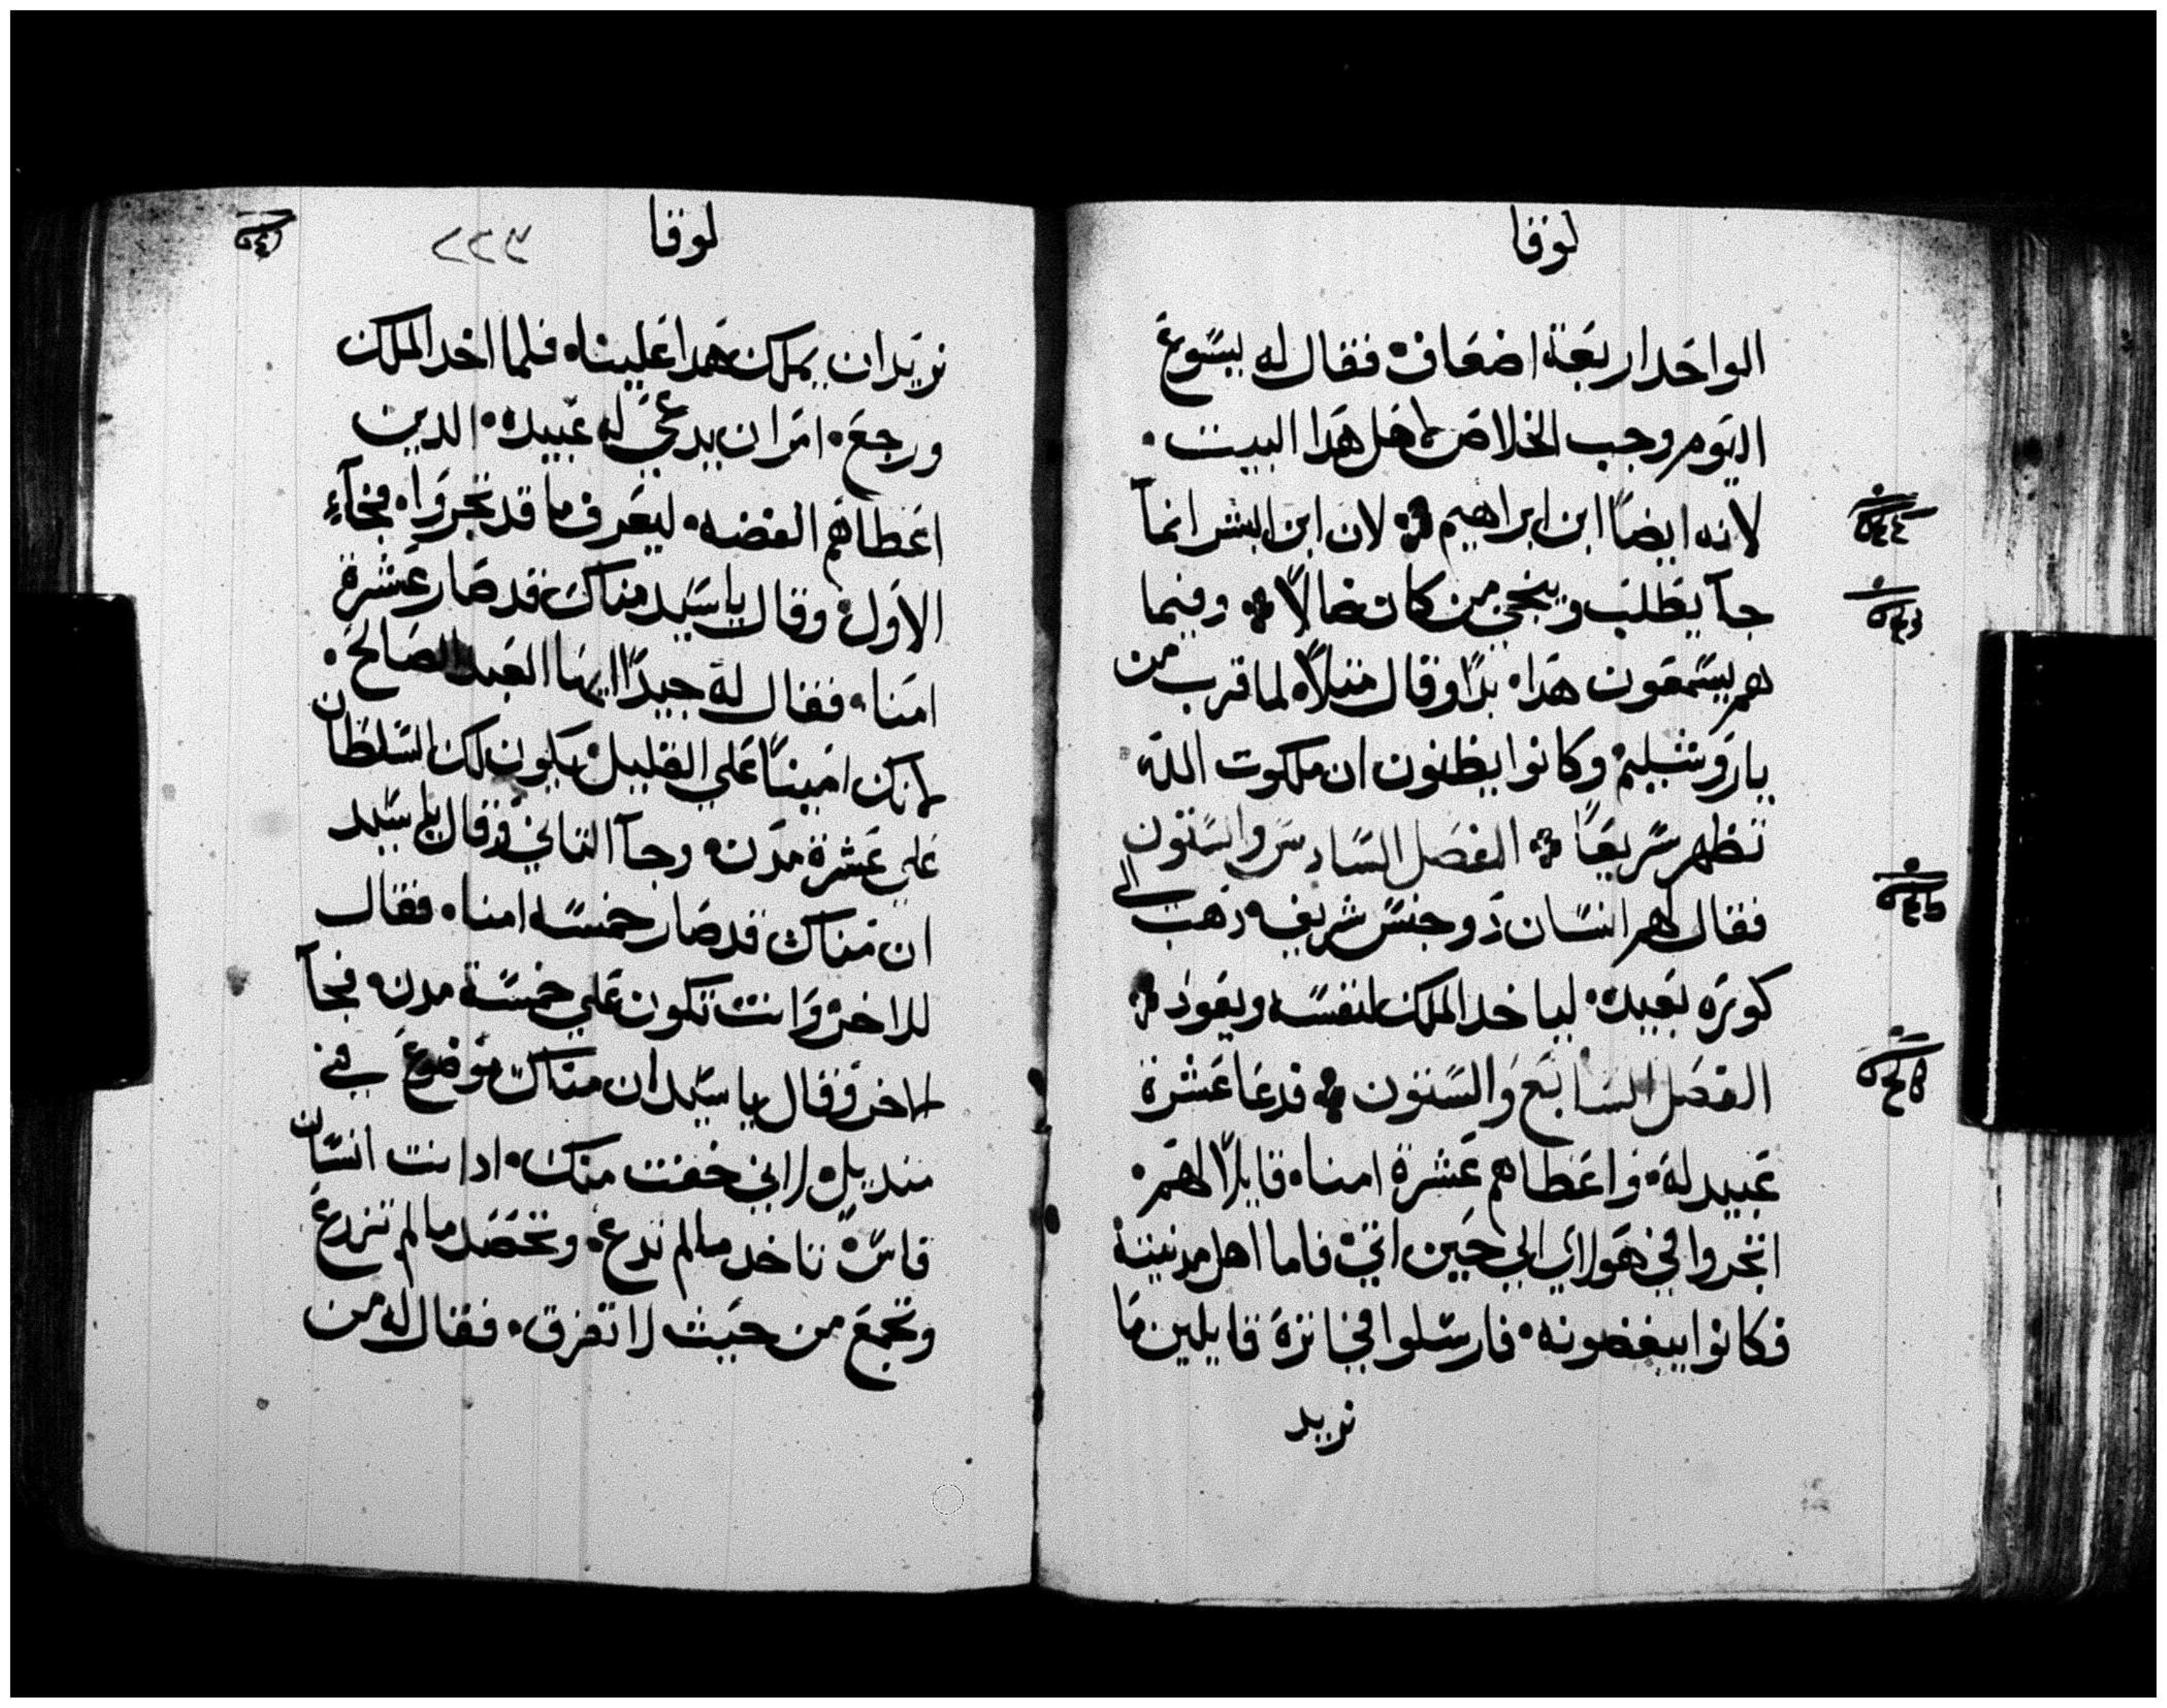 لوقا
الواحد اربعة اضعاف ۰ فقال له يسوع
اليوم وجب الخلاص لاهل هدا البيت ۰
لانه ايضاً ابن ابراهيم ۰ لان ابن البشر انمآ
جآ يطلب وينجي من كان ضالاً ۰ وفيما
هم يسمعون هدا ۰ بدا وقال مثلاً ۰ لما قرب من
يارو شليم ۰ وكانوا يظنون ان ملكوت الله
تظهر سريعاً ۰ الفصل السادس والستون
فقال لهم انسان ذو جنس شريف ۰ ذهب الي
كورة بعيدة ۰ لياخد الملك لنفسه ويعود ۰
الفصل السابع والستون ۰ فدعا عشرة
عبيد له ۰ واعطاهم عشرة امنا ۰ قايلاً لهم ۰
اتجروا في هولاي الي حين اتي ۰ فاما اهل مدينته
فكانوا يبغضونه ۰ فارسلوا في اثره قايلين ما
نريد
لوقا
٢٢٣
نريد ان يملك هدا علينا ۰ فلما اخد الملك
ورجع ۰ امر ان يدعي له عبيده ۰ الدين
اعطاهم الفضه ۰ ليعرف ما قد تجروا ۰ فجآء
الاول ۰ وقال يا سيد مناك قد صار عشرة
امنا ۰ فقال له جيدا ايها العبد الصالح ۰
لانك اميناً علي القليل ۰ يكون لك السلطان
علي عشرة مدن ۰ وجآ التاني وقال يا سيد
ان مناك قد صار خمسة امنا ۰ فقال
للاخر وانت تكون علي خمسة مدن ۰ فجآ
الاخر وقال يا سيد ان مناك موضوع في
منديل ۰ لاني خفت منك ۰ اد انت انسان
قاس ۰ تاخد ما لم تدع ۰ وتحصد ما لم تزرع
وتجمع من حيث لا تفرق ۰ فقال له من